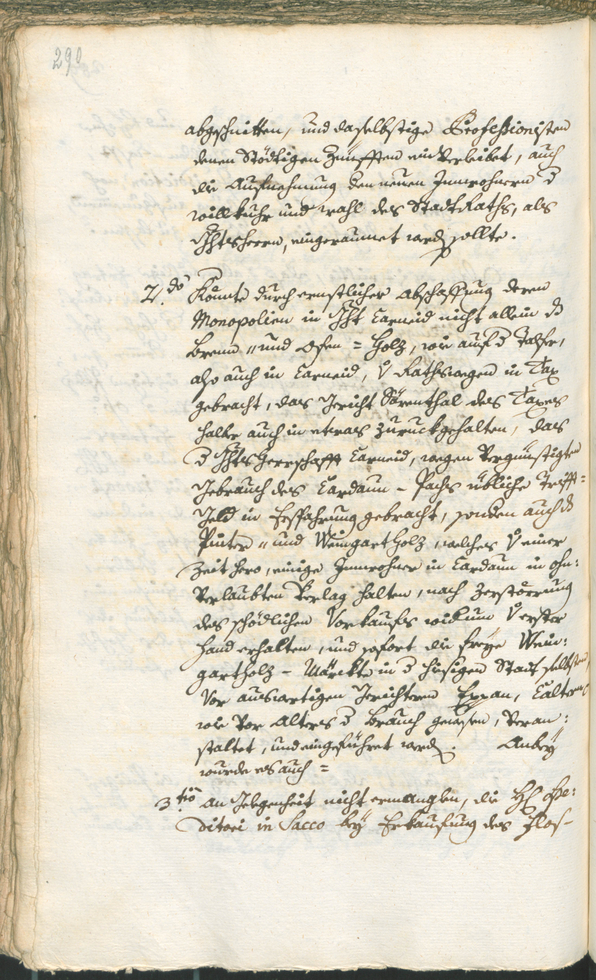 290
abgschnitten, und daselbstige Professionisten
denen Stödtigen Zünfften einverleibet, auch
die Aufnehmung den neuen Innwohnern d
willkuhr und wahl des StadtRaths, als
Ghtsherrn, eingeraumet werd sollte.
2.do Könnte durch ernstlicher Abschaffung deren
Monopolien in Ght Carneid nicht allein ds
brenn- und Ofen = Holz, wie auf d Talfer,
also auch in Carneid, V Rathswegen in Tax
gebracht, das Gericht Särenthal des Taxes
halber auch in etwas zuruckgehalten, das
d Ghts Herrschafft Carneid, wegen Vergünstigten
Gebrauch des Cardaun - Pachs übliche Trüfft =
Geld in Erfahrung gebracht, sonder auch ds
Pinter- und Weingart Holz, welches V einer
Zeit hero, einige Innwohner in Cardaun in ohn:
Verlaubten Verlag halten, nach Zerstörrung
des schödlichen Vorkaufs widrum V erster
Hand erhalten, und sofort die freye Wein:
gartholz - Märckte in d hiesigen Stadt selbsten,
Vor auswartigen Gerichtern Eppan, Caltern
wie Vor Alters d brauch gewesen, Veran:
staltet, und eingeführet werd. Anbey
wurde es auch =
3.tio an Gelegenheit nicht ermanglen, die HH Spe:
ditori in Sacco bey Erkaufung des Flos-